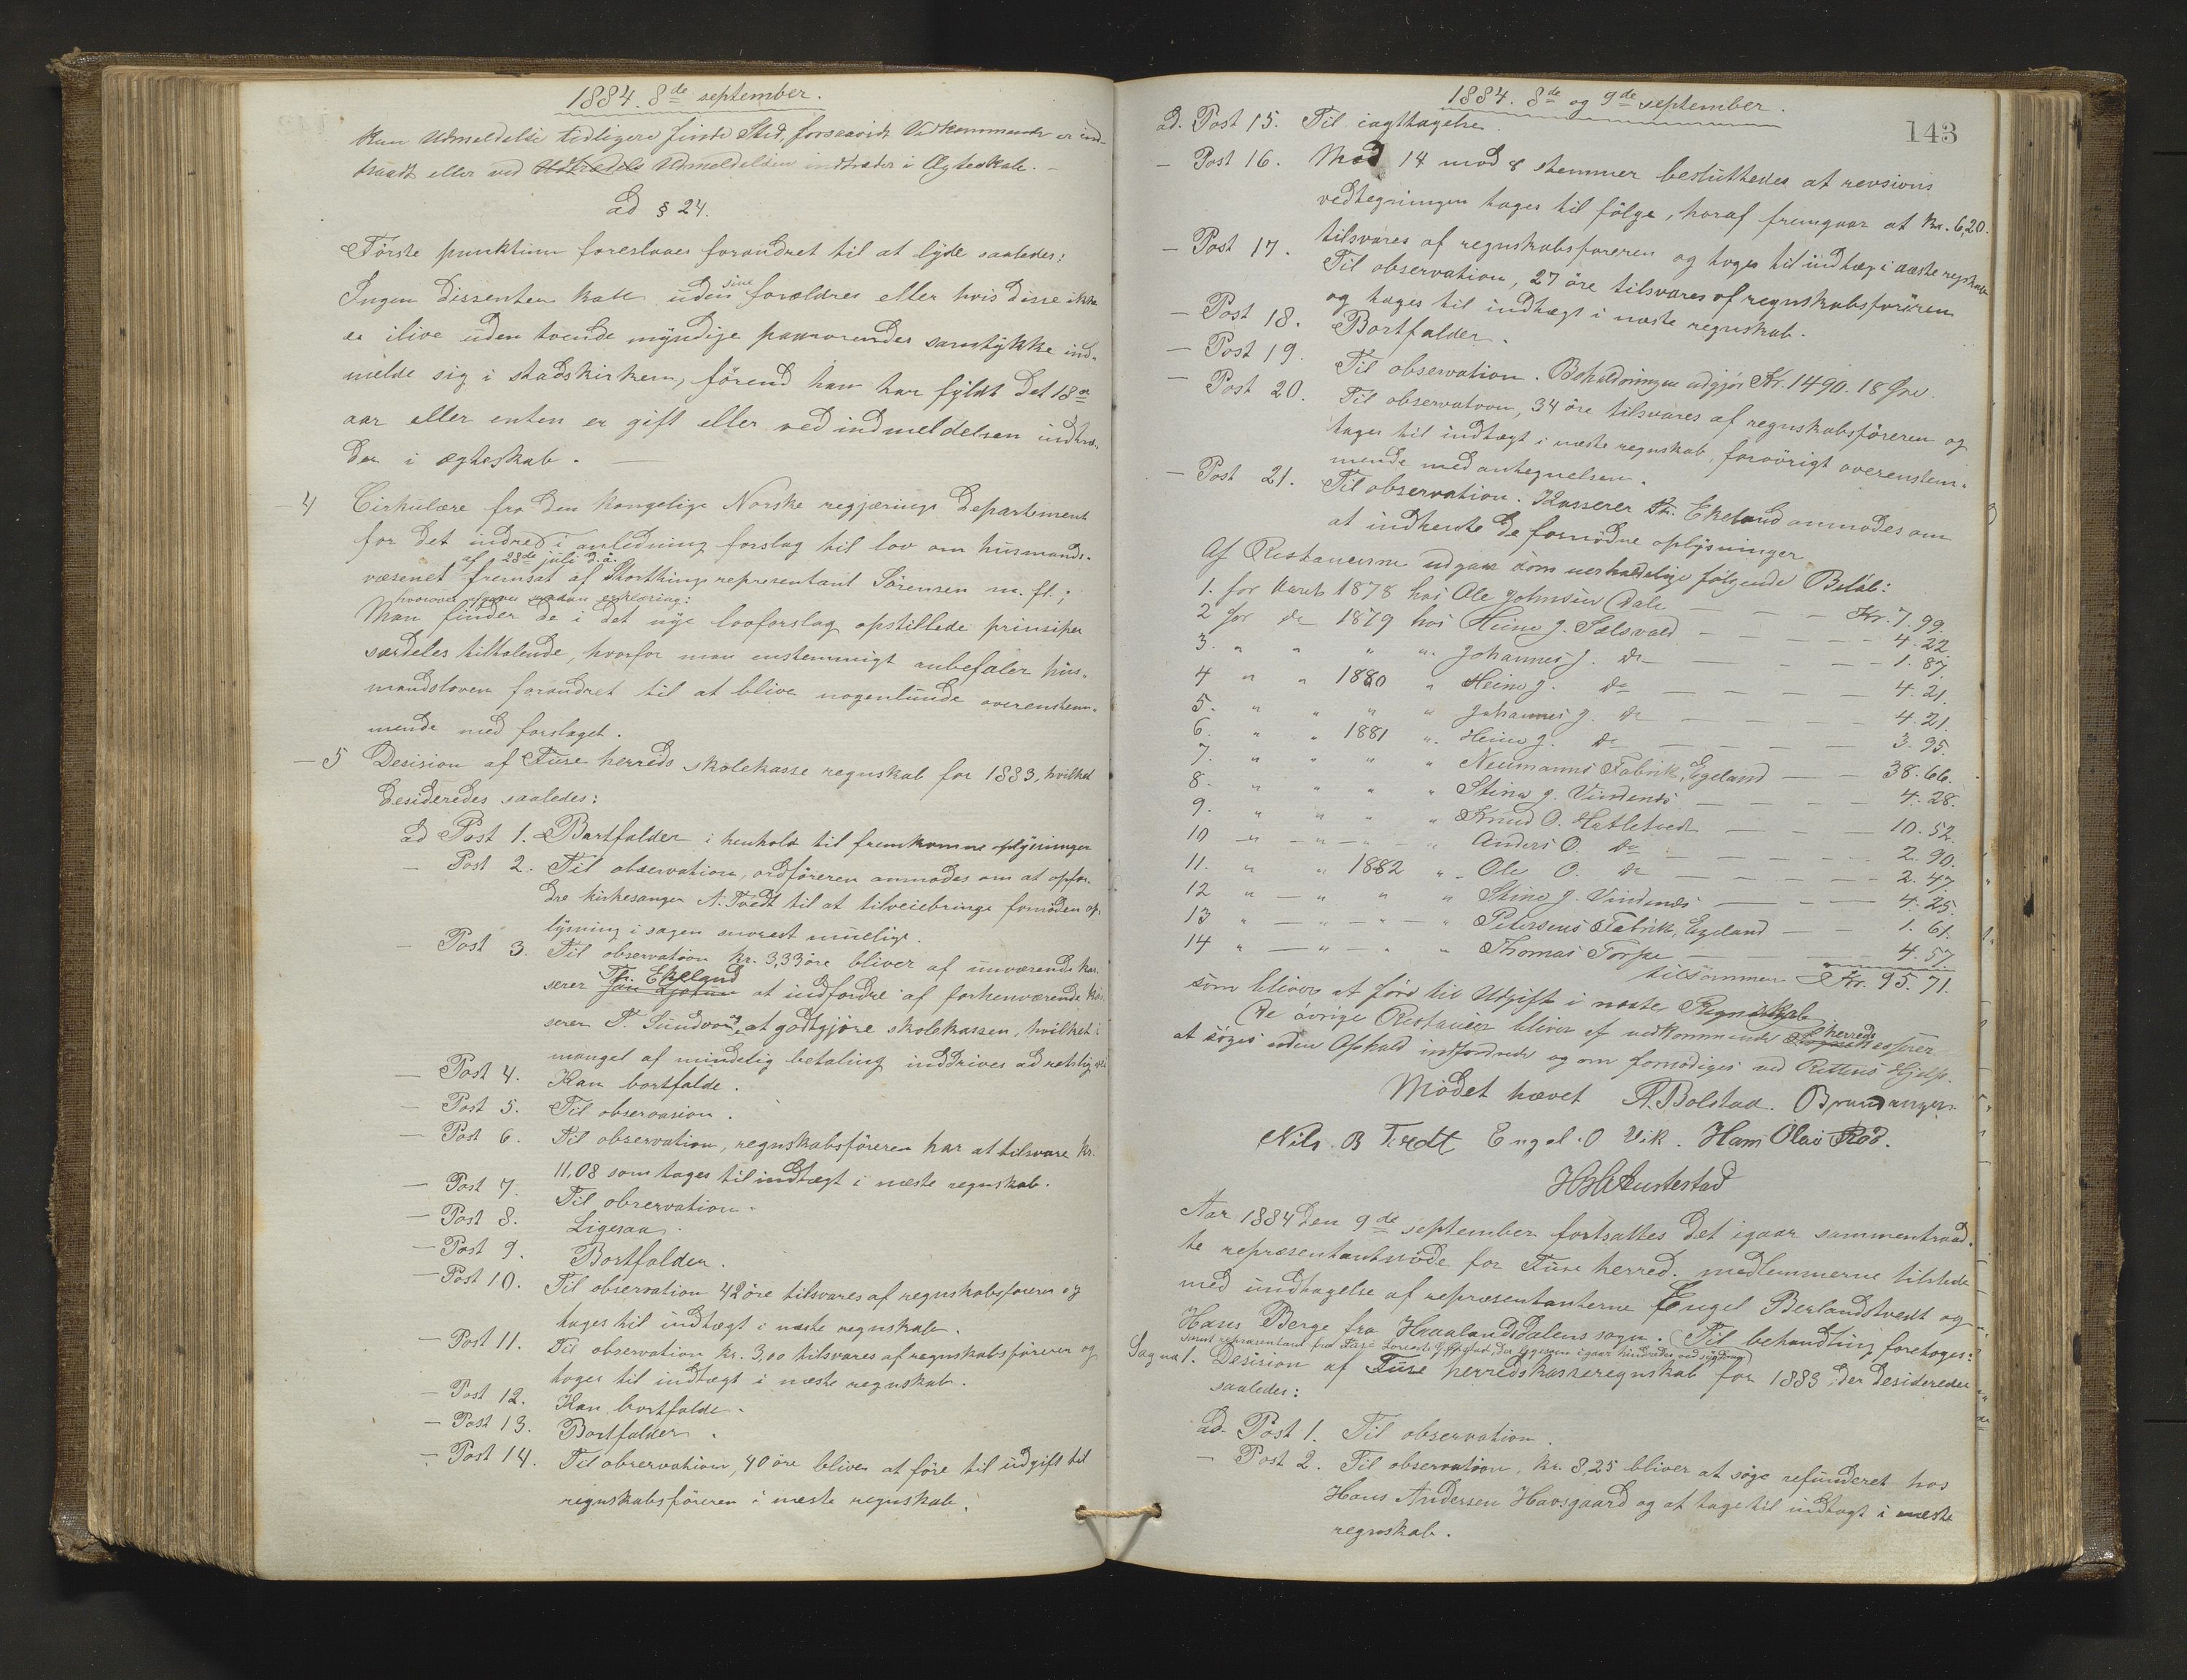 1884. 8de september.
kun Udmeldelse tidligere finde Sted, forsaavidt Vedkommende er ind-
traadt eller ved Udtrædels Udmeldelsen indtræder i Ægteskab. —
ad § 24.
Förste punktum foreslaaes forandret til at lyde saaledes:
Ingen dissenter kan uden sine forældres eller hvis disse ikke
er ilive uden tvende myndige paarørendes samtykke ind-
melde sig i stadskirken, förend han har fyldt det 18de
aar eller enten er gift eller ved indmeldelsen indtræ-
der i ægteskab. —
4 Cirkulære fra den kongelige Norske regjærings Departement
for det indre i anledning forslag til lov om husmands-
af 28de juli d.å.
væsenet fremsat af Storthingsrepresentant Sörensen m. fl.;
hvorover afgaves saadan erklæring:
Man finder de i det nye lovforslag opstillede prinsiper
særdeles tiltalende, hvorfor man enstemmigt anbefaler hus-
mandsloven forandret til at blive nogenlunde overenstem-
mende med forslaget.
— 5 Desision af Fuse herreds skolekasse regnskab for 1883, hvilket
desideredes saaledes:
ad Post 1. Bortfalder i henhold til fremkomne oplysninger
— Post 2. Til observation, ordföreren anmodes om at opfor-
dre kirkesanger N. Tvedt til at tilveiebringe fornöden op-
lysning i sagen snarest muelige.
— Post 3. Til observation kr. 3,33 öre bliver af nuværende kas-
Th. Ekeland
serer at indfordre af forhenværende kas-
serer T. Sundvor, at godtgjöre skolekassen, hvilket i
mangel af mindelig betaling inddrives ad retslig vei
— Post 4. Kan bortfalde.
— Post 5. Til observasion.
— Post 6. Til observation, regnskabsföreren har at tilsvare kr.
11,08 som tages til indtægt i næste regnskab.
— Post 7. Til observation.
— Post 8. Ligesaa.
— Post 9. Bortfalder.
— Post 10. Til observation 42 öre tilsvares af regnskabsföreren og
tages til indtægt i næste regnskab.
— Post 11. Til observation kr. 3,00 tilsvares af regnskabsföreren og
tages til indtægt i næste regnskab.
— Post 12. Kan bortfalde.
— Post 13. Bortfalder.
— Post 14. Til observation, 40 öre bliver at före til udgift til
regnskabsföreren i næste regnskab.
1884. 8de og 9de september.
143
ad. Post 15. Til iagttagelse.
— Post 16. Med 14 mod 8 stemmer besluttedes at revsions
vedtegningen tages til fölge, hvoraf fremgaar at kr. 6,20.
tilsvares af regnskabsföreren og tages til indtægt i næste regnskab
— Post 17. Til observation, 27 öre tilsvares af regnskabsföreren
og tages til indtægt i næste regnskab.
— Post 18. Bortfalder.
— Post 19. Til observation. Beholdningen udgjör Kr. 1490. 18 Öre.
— Post 20. Til observation, 34 öre tilsvares af regnskabsföreren og
tages til indtægt i næste regnskab, forövrigt overenstem-
mende med antegnelsen.
— Post 21. Til observation. Kasserer Th. Ekeland anmodes om
at indhente de fornödne oplysninger
Af Restancerne udgaar som uerholdelige fölgende Belöb:
1. for Aaret 1878 hos Ole Johnsen Dale — — — Kr. 7. 99.
2 for do 1879 hos Heine J. Sælsvold — — — — 4. 22
3. " " " " Johannes J. do — — — — 1. 87.
4 " " 1880 " Heine J. do — — — — 4. 21.
5. " " " " Johannes J. do — — — — 4. 21.
6. " " 1881 " Heine J. do — — — — 3. 95.
7. " " " " Neumanns Fabrik, Egeland — — 38. 66.
8. " " " " Stine J. Vindenes — — — — 4. 28.
9. " " " " Knud O. Hatletvedt — — — 10. 52.
10 " " " " Anders O. do — — — — 2. 90.
11. " " 1882 " Ole O. do — — — — 2. 47.
12 " " " " Stine J. Vindenes — — — 4. 25.
13 " " " " Petersens Fabrik, Egeland — — 1. 61.
14 " " " " Thomas Torpe — — — 4. 57
tilsammen Kr. 95. 71.
som bliver at före til Udgift i næste Regnskab
De övrige Restancer bliver af vedkommende herredskasserer
at söges uden Ophold indfordrede og om fornödiges ved Rettens Hjelp.
Mödet hævet R. Bolstad.
Nils B Tvedt Engel. O Vik. Hans Olai Röd.
Aar 1884 den 9de september fortsattes det igaar sammentraad-
te repræsentantmöde for Fuse herred. medlemmerne tilstede
med undtagelse af repræsentanterne Engel Berlandstvedt og
Hans Berge fra Haalandsdalens sogn. Til behandling foretoges:
samt repræsentant fra Fuse der ligesom igaar hindredes ved sygdom)
Sag no 1. Desision af Fuse herredskasseregnskab for 1883, der desideredes
saaledes:
ad. Post 1. Til observation.
— Post 2. Til observation, kr. 8,25 bliver at söge refunderet hos
Hans Andersen Havsgaard og at tage til indtægt i næste
regnskab.